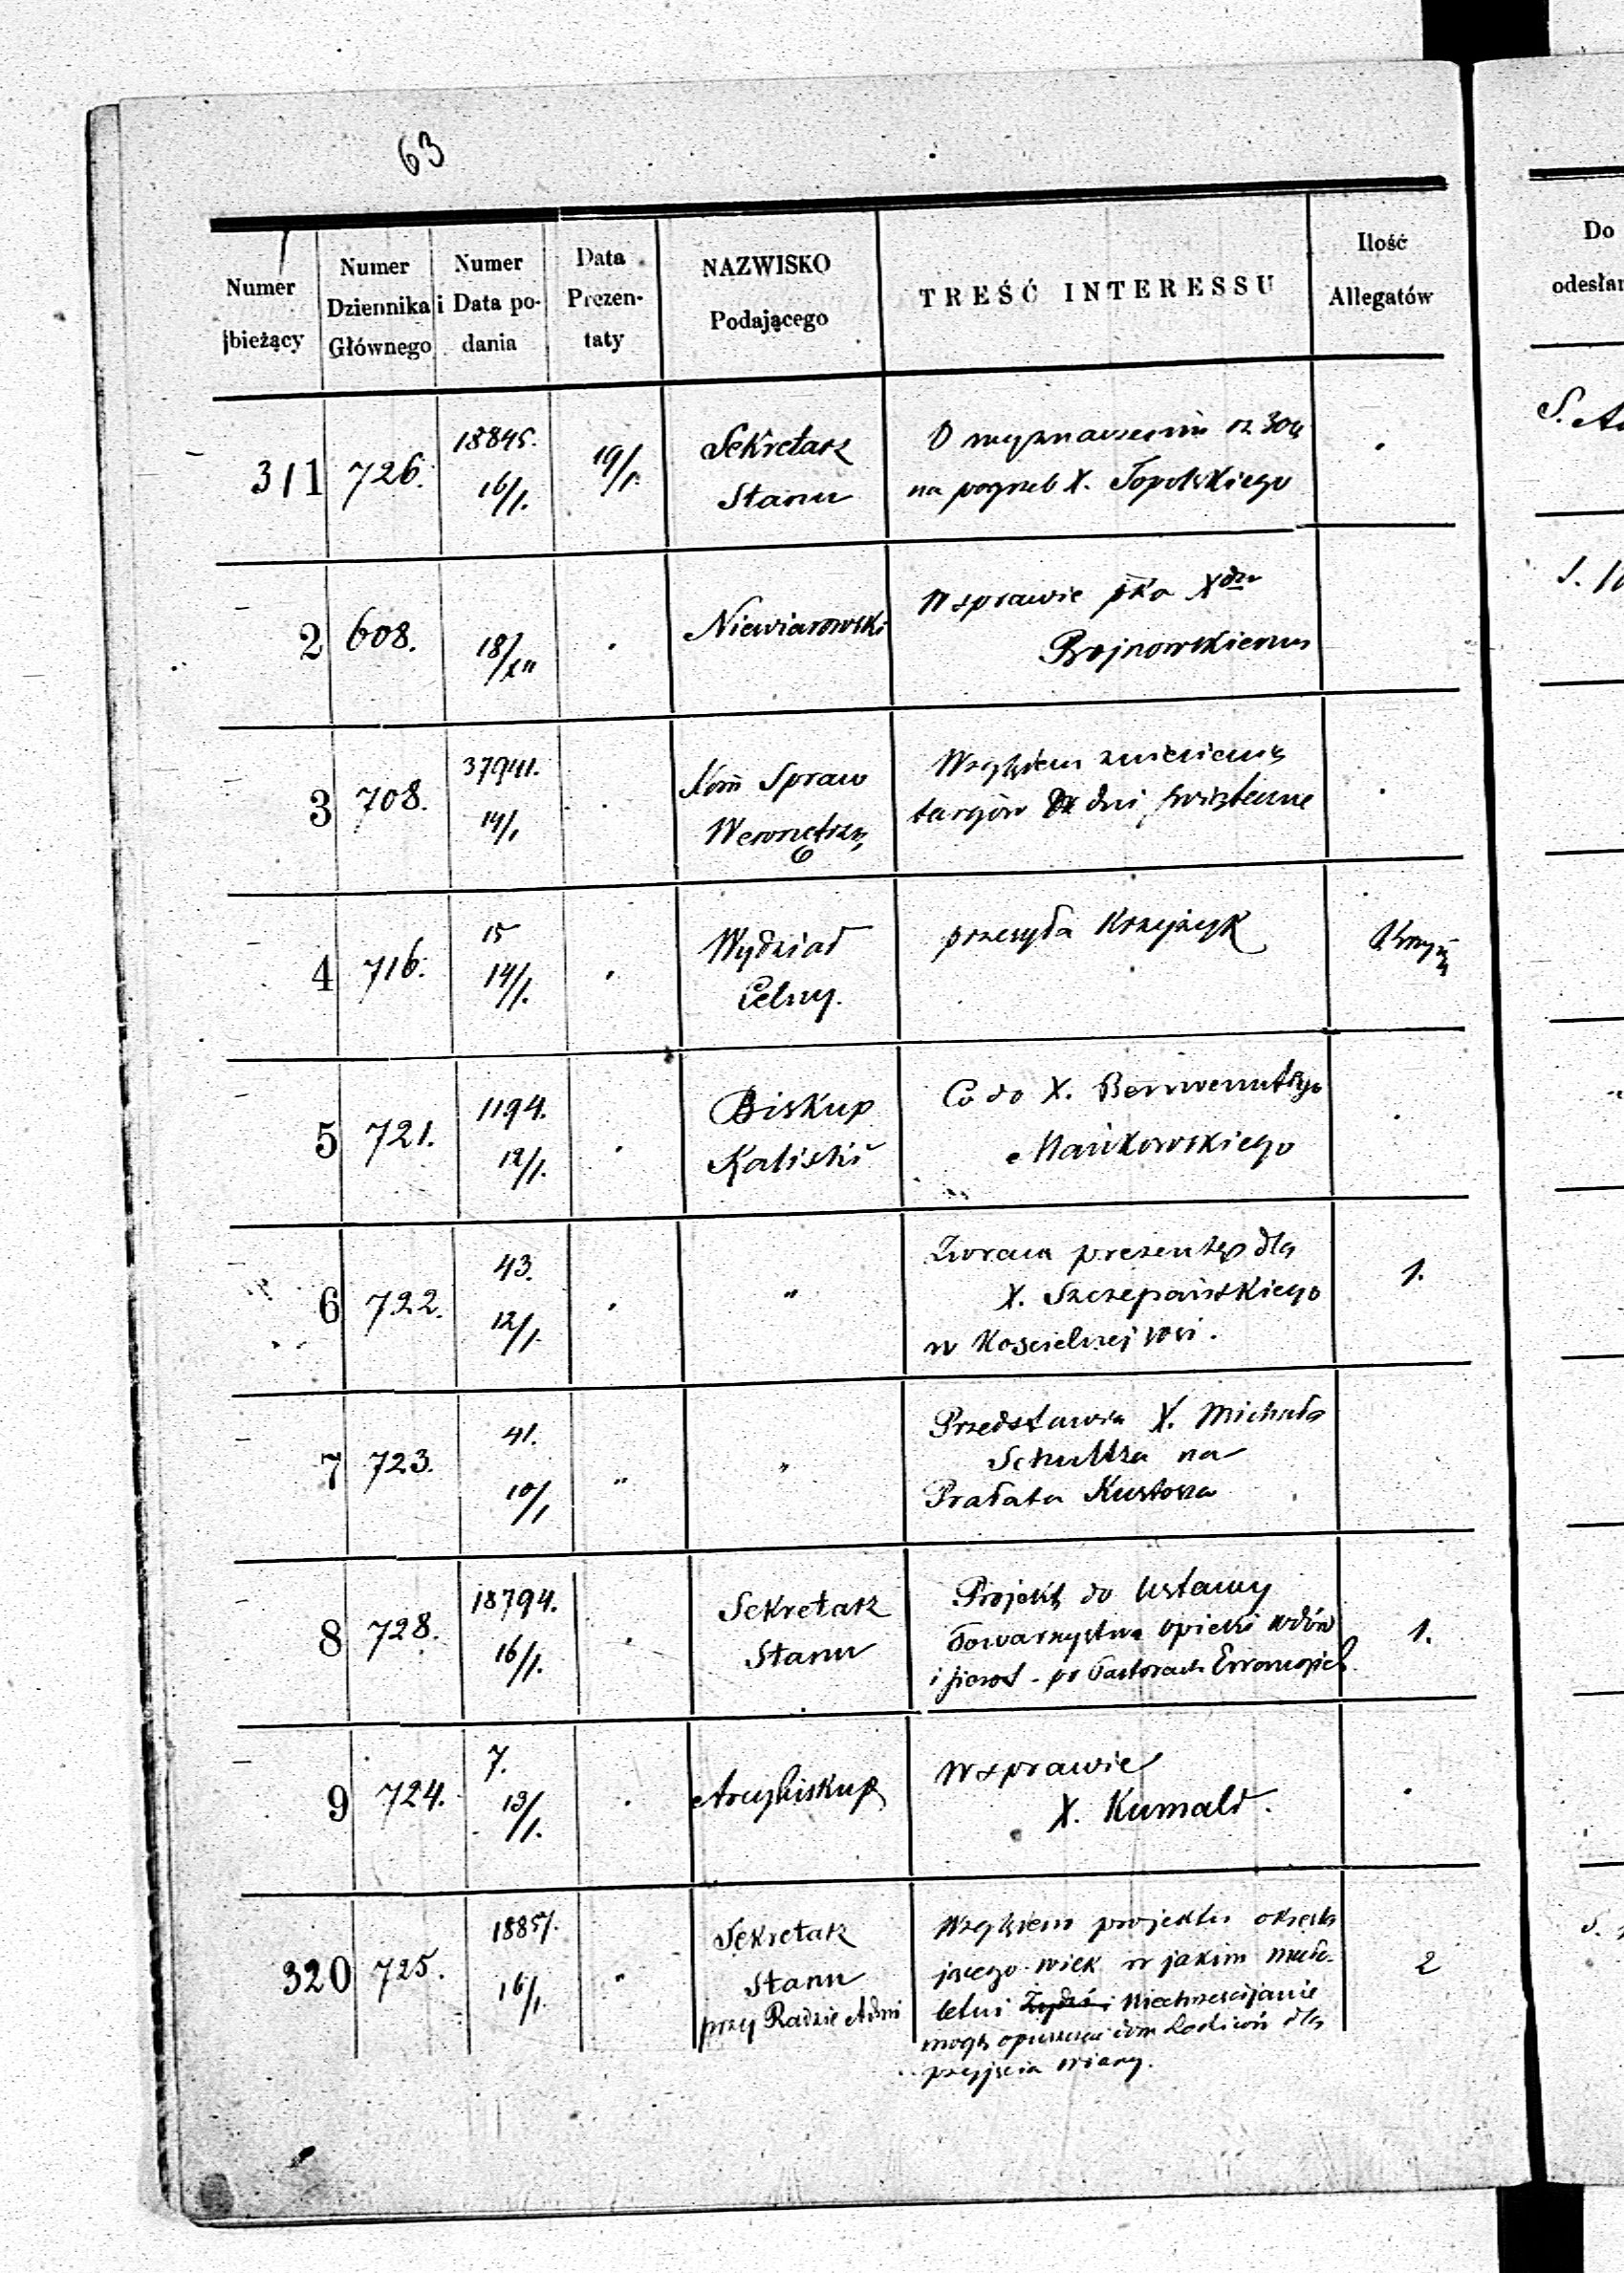 63
Numer bieżący
Numer Dziennika Głównego
Numer i Data podania
Data Prezentaty
NAZWISKO Podającego
TREŚĆ INTERESSU
Ilość Allegatów
Do
odesłan
311 726. 18845. 16/1. 19/1. Sekretarz
Stanu
O wyznaczenie rs 304
na pogrzeb X. Topolskiego
2 608. 18/XII Niewiarowski
W sprawie pko Xdzu
Bojnowskiemu
3 708. 37941. 14/1 Kom Spraw
Wewnętrzn
Względem zniesienia
targów dni świąteczne
4 716. 15 14/1. Wydział
Celny.
przesyła Krzyżyk
5 721. 1194. 12/1. Biskup
Kaliski
Co do X. Benwenutego
Mańkowskiego
6 722. 43. 12/1. "
Zwraca prezentę dla
X. Szczepańskiego
w Kościelnej wsi.
1.
7 723. 41. 10/1 " "
Przedstawia X. Michała
Schultza na
Prałata Kustosza
8 728. 18794. 16/1. Sekretarz
Stanu
Projekt do Ustawy
Towarzystwa opieki wdów
i sierot po Pastorach Ewangielic
1.
9 724. 7. 13/1. Arcybiskup
W sprawie
X. Kumald.
320 725. 18857. 16/1. " Sekretarz
Stanu
przy Radzie Admi
Względem projektu określa
jącego wiek w jakim mało-
letni Żydzi i Niechrześcijanie
mogą opuszczać dom Rodziców dla
przyjęcia wiary.
2